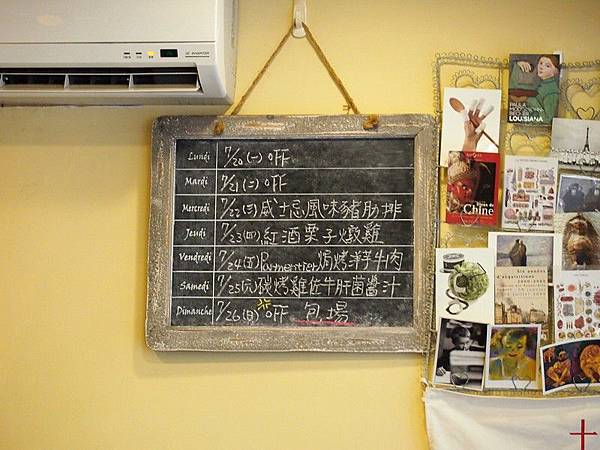 Lundi 7/20 (一) OFF
Mardi 7/21 (二) OFF
Mercredi 7/22 (三) 威士忌風味豬肋排
Jeudi 7/23 (四) 紅酒栗子燉雞
Vendredi 7/24 (五) Parmentier焗烤洋芋牛肉
Samedi 7/25 (六) 碳烤雞佐牛肝菌醬汁
Dimanche 7/26 (日) OFF 包場
PAULA
LOUISIANA
Chine
十